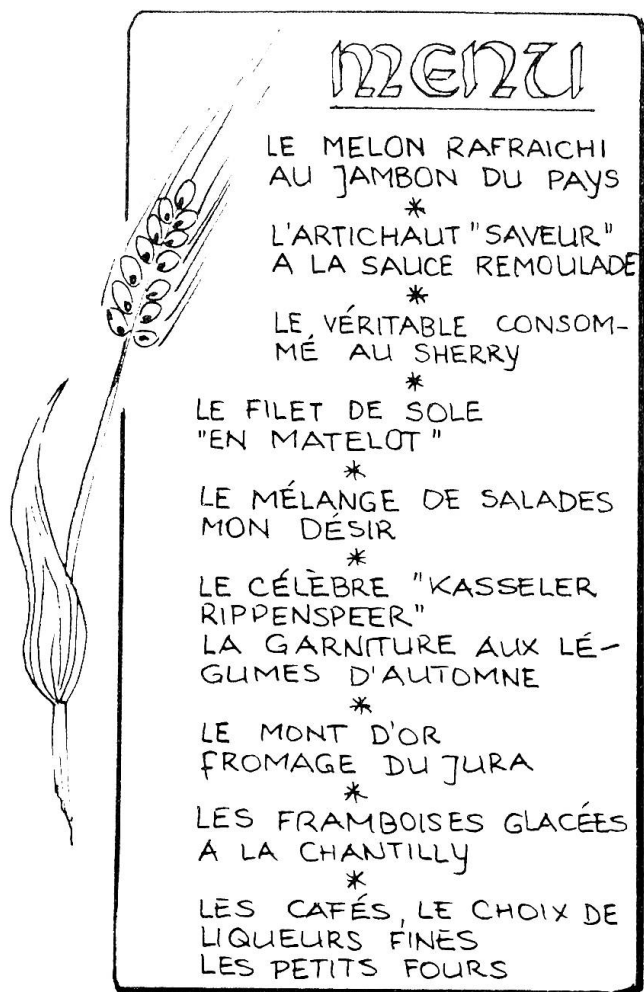 MENU
LE MELON RAFRAICHI
AU JAMBON DU PAYS
*
L'ARTICHAUT "SAVEUR"
A LA SAUCE REMOULADE
*
LE VÉRITABLE CONSOM-
MÉ AU SHERRY
*
LE FILET DE SOLE
"EN MATELOT"
*
LE MÉLANGE DE SALADES
MON DÉSIR
*
LE CÉLÈBRE "KASSELER
RIPPENSPEER"
LA GARNITURE AUX LÉ-
GUMES D'AUTOMNE
*
LE MONT D'OR
FROMAGE DU JURA
*
LES FRAMBOISES GLACÉES
A LA CHANTILLY
*
LES CAFÉS, LE CHOIX DE
LIQUEURS FINES
LES PETITS FOURS